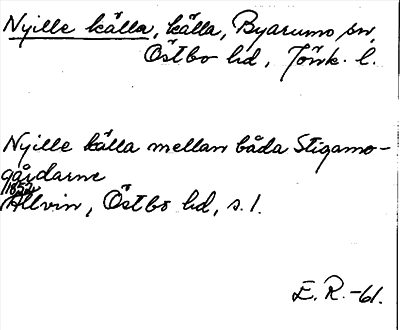 Nyille källa, källa, Byarums sn,
Östbo hd, Jönk. l.
Nyille källa mellan båda Stigamo-
gårdarne
1852
Allvin, Östbo hd, s. 1.
E. R. -61.